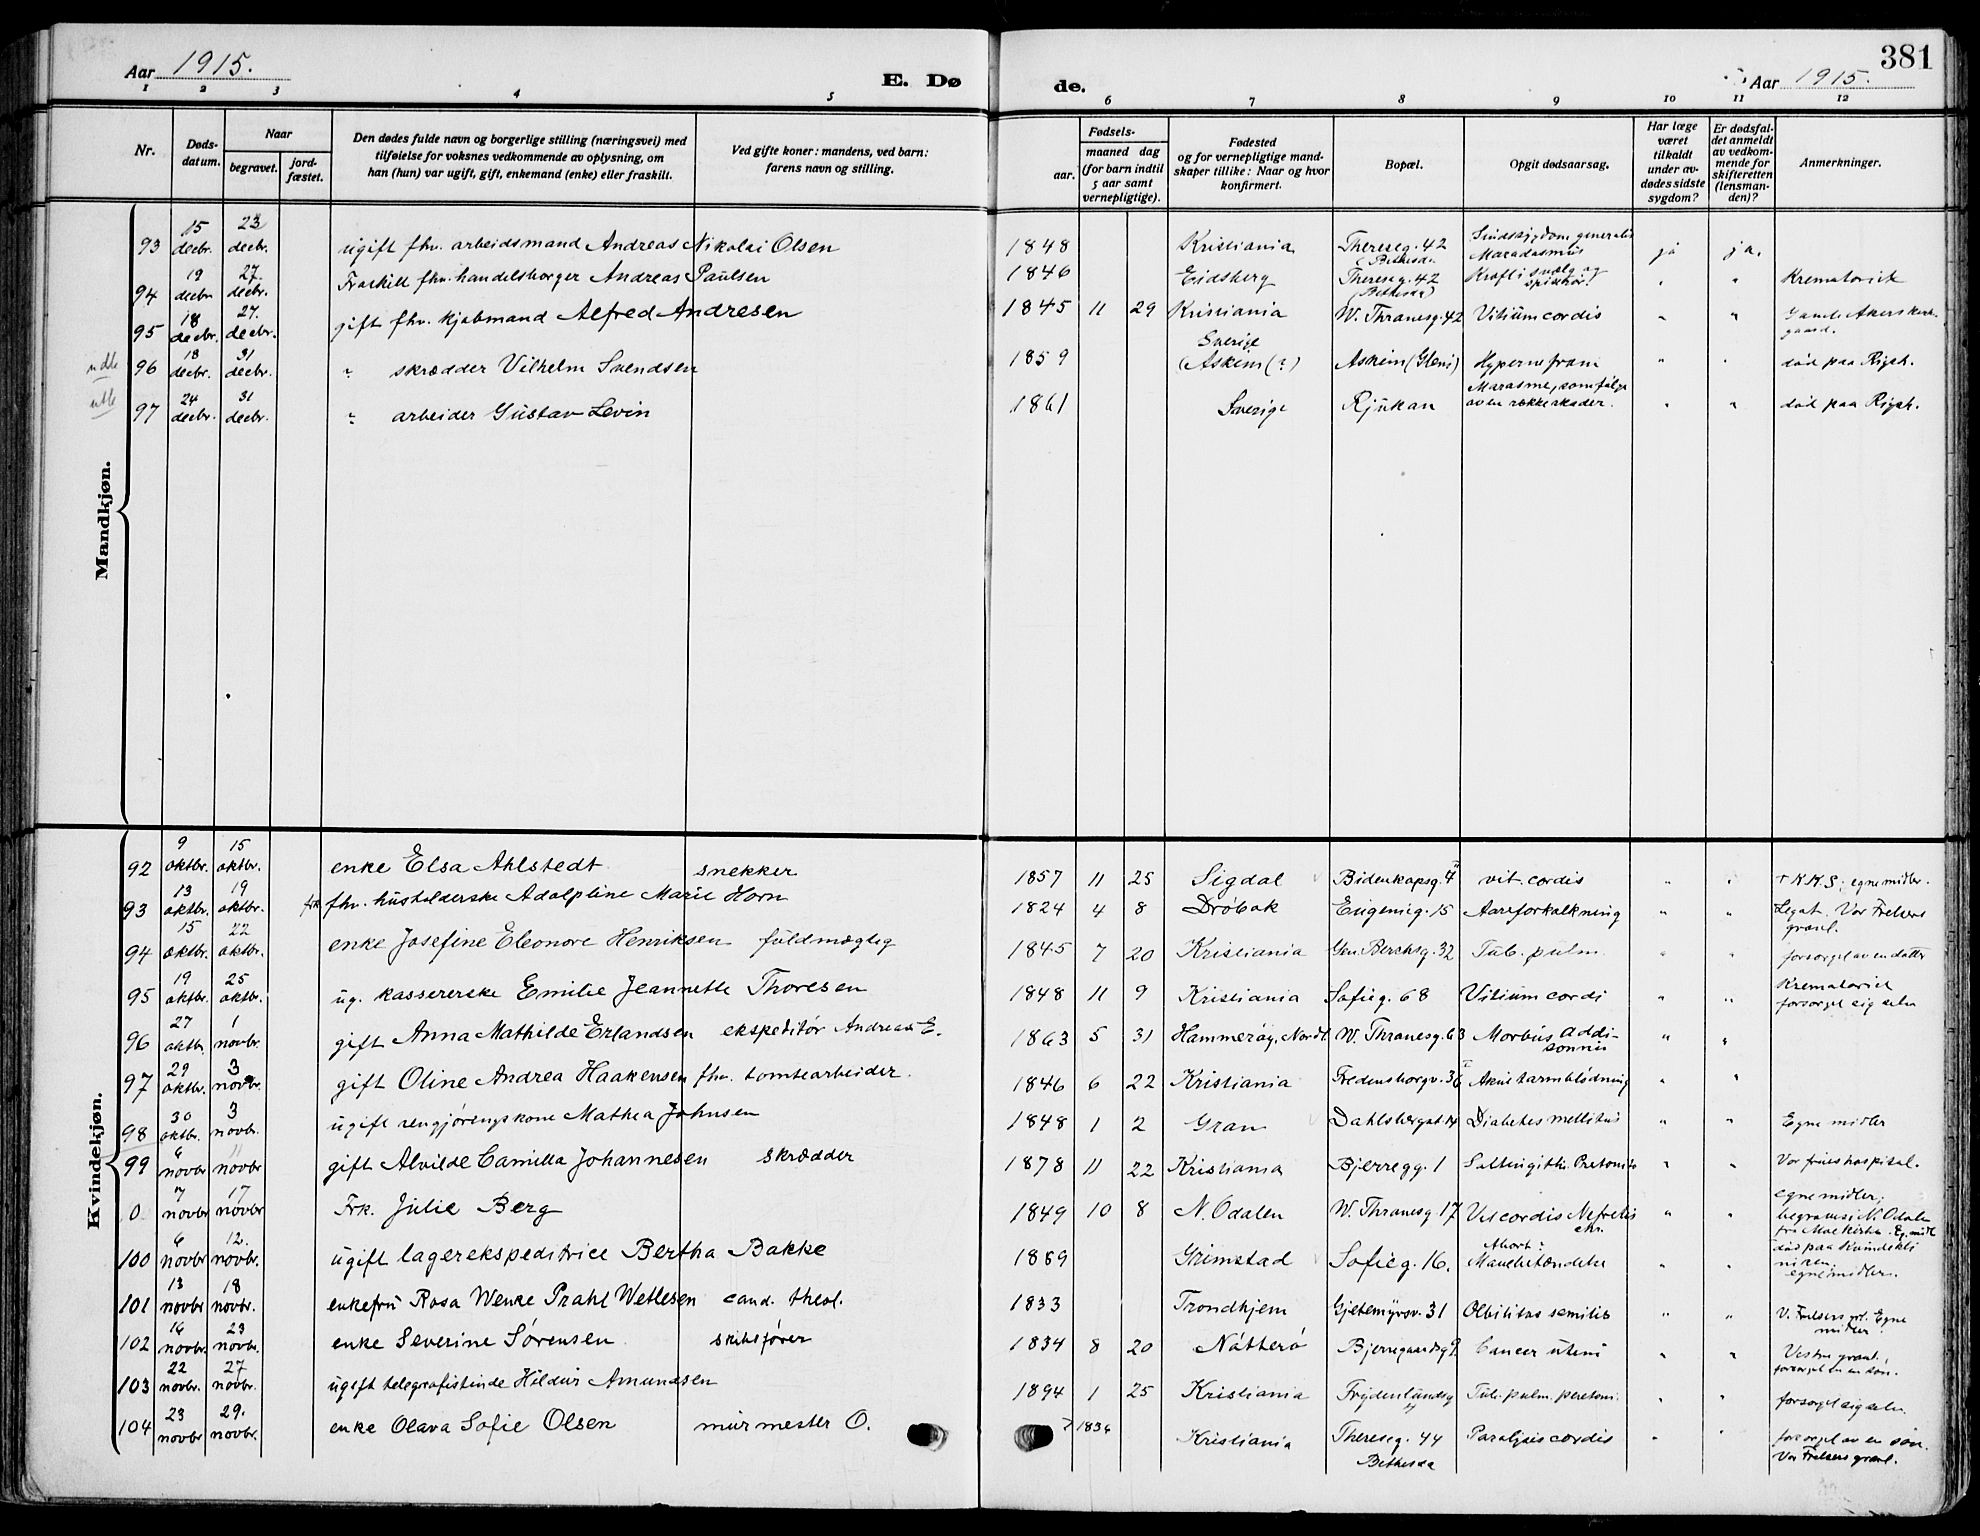 Aar 1915.
E. Dø
de.
381
Aar 1915.
1 2 3 4 5 6 7 8 9 10 11 12
Nr.
Døds-
datum.
Naar
begravet.
jord-
fæstet.
Den dødes fulde navn og borgerlige stilling (næringsvei) med
tilføielse for voksnes vedkommende av oplysning, om
han (hun) var ugift, gift, enkemand (enke) eller fraskilt.
Ved gifte koner: mandens, ved barn:
farens navn og stilling.
Fødsels-
aar.
maaned dag
(for barn indtil
5 aar samt
vernepligtige).
Fødested
og for vernepligtige mand-
skaper tillike: Naar og hvor
konfirmert.
Bopæl.
Opgit dødsaarsag.
Har læge
været
tilkaldt
under av-
dødes sidste
sygdom?
Er dødsfal-
det anmeldt
av vedkom-
mende for
skifteretten
(lensman-
den)?
Anmerkninger.
Mandkjøn.
93 15 decbr. 23 decbr. ugift fhv. arbeidsmand Andreas Nikolai Olsen 1848 Kristiania Thereseg. 42 (Bethesda Sindssygdom generalis Maradasmus ja ja.
94 19 decbr 27. decbr. Fraskilt fhv. handelsborger Andreas Paulsen 1846 Eidsberg Thereseg. 42 (Bethesda) Kræft i svælg og spiserør. " " Krematoriet
95 18 decbr. 27. decbr. gift fhv. kjøbmand Alfred Andresen 1845 11 29 Kristiania W. Thranesg. 42 Vitium cordis " " Gamle Akers kirkegaard.
96 18 decbr. 31 decbr. " skrædder Vilhelm Svendsen 1859 Sverige (Askim (?) Askim (Gleni) Hypernefrom " " død paa Rigsh.
97 24 decbr. 31 decbr. " arbeider Gustav Levin 1861 Sverige Rjukan Marasme, som følge av en række skader. " " død paa Rigsh.
Kvindekjøn.
92 9 oktbr. 15 oktbr. enke Elsa Ahlstedt snekker 1857 11 25 Sigdal Bidenkapsg. 4 II vit. cordis " " + K.K.S; egne midler.
93 13 oktbr. 19 oktbr. frk fhv. husholderske Adolphine Marie Horn 1824 4 8 Drøbak Eugenieg. 15 Aareforkalkning " " Legat. Vor Frelsers gravl.
94 15 oktbr. 22 oktbr. enke Josefine Eleonore Henriksen fuldmægtig 1845 7 20 Kristiania Gen. Berchsg. 32 Tub. pulm. " " forsørget av en datter
95 19 oktbr. 25 oktbr. ug. kassererske Emilie Jeannette Thoresen 1848 11 9 Kristiania Sofieg. 68 Vitium cordi " " Krematoriet forsørget sig selv
96 27 oktbr. 1 novbr. gift Anna Mathilde Erlandsen ekspeditør Andreas E. 1863 5 31 Hammerøy, Nordl. W. Thranesg. 63 Morbus Addisonnii " "
97 29 oktbr. 3 novbr. gift Oline Andrea Haakensen fhv. tomtearbeider. 1846 6 22 Kristiania Fredensborgv. 36 II Akut tarmblødning " "
98 30 oktbr. 3 novbr. ugift rengjøringskone Mathea Johnsen 1848 1 2 Gran Dahlsbergst. 14 Diabetes mellitus " " Egne midler
99 6 novbr 11 novbr gift Alvilde Camilla Johannesen skrædder 1878 11 22 Kristiania Bjerregg. 1 Saltingitis. Peretonitis " " Vor frues hospital.
0 7 novbr 17 novbr Frk. Julie Berg 1849 10 8 N. Odalen W. Thranesg. 17 Vit cordis Nefretis chr. " " egne midler; begraves i N. Odalen fra Moe kirke. Eg. midl
100 6 novbr 12. novbr. ugift lagerekspeditrice Bertha Bakke 1889 Grimstad Sofieg. 16. Abort? " " død paa Kvindekliniken. egne midler.
101 13 novbr 18 novbr. enkefru Rosa Wenke Prahl Wetlesen cand. theol. 1833 Trondhjem Gjetemyrsv. 31 Debilitas senilis " " V. Frelsers grl. Egne midler.
102 16 novbr. 23 novbr. enke Severine Sørensen skibsfører 1834 8 20 Nøtterø Bjerregaardsg 9. Cancer uteri " " Vestre gravl. forsørget av en søn.
103 22 novbr. 27 novbr. ugift telegrafistinde Hildur Amundsen 1894 1 25 Kristiania Frydenlundsg Tub. pulm. peretoni. " " forsørget sig selv.
104 23 novbr 29. novbr. enke Olava Sofie Olsen murmester O. ? 1836 Kristiania Thereseg. 44 Bethesda Paralysis cordis " " forsørget av en søn. Vor Frelsers gravl.